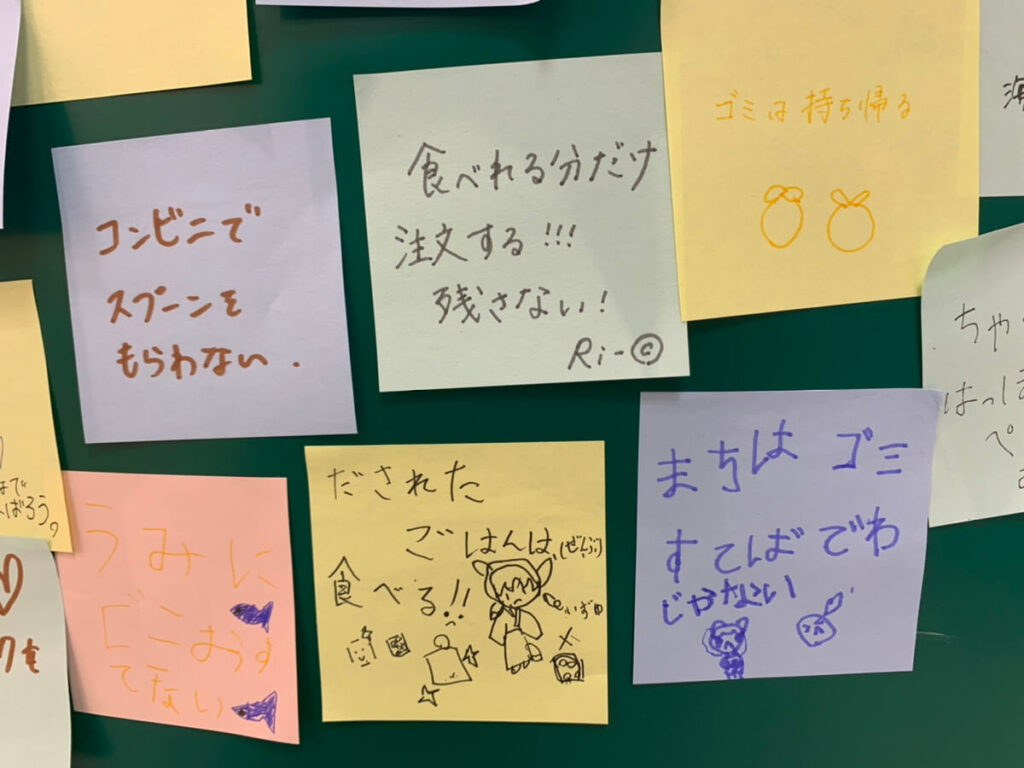 コンビニで
スプーンを
もらわない.
食べれる分だけ
注文する!!!
残さない!
Ri-©
ゴミは持ち帰る
海
ちゃ
はっぽ
ペ
ばろう。
うみに
ゴミおうす
てない
だされた
ごはんは(ぜんぶ)
食べる!!
いずゆ
まちは ゴミ
すてばでわ
じゃなない